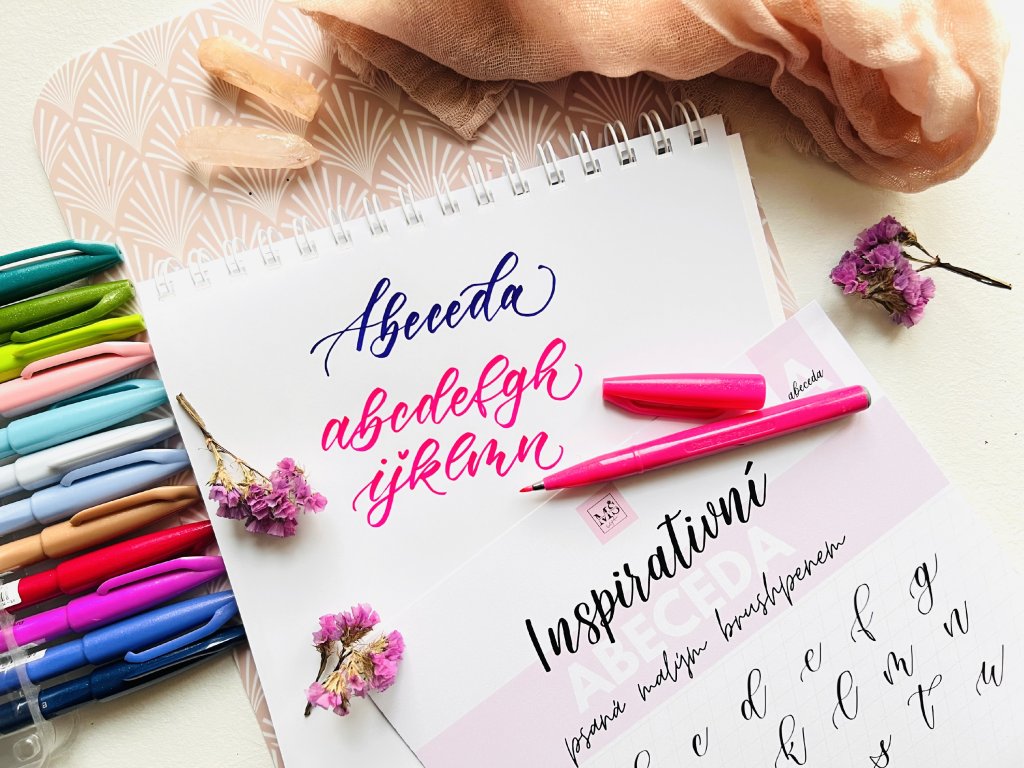 Abeceda
abcdefgh
ijklmn
A
abeceda
MS
Inspirativní
ABECEDA
psaná malým brushpenem
c d e f g
k l m n
s t w